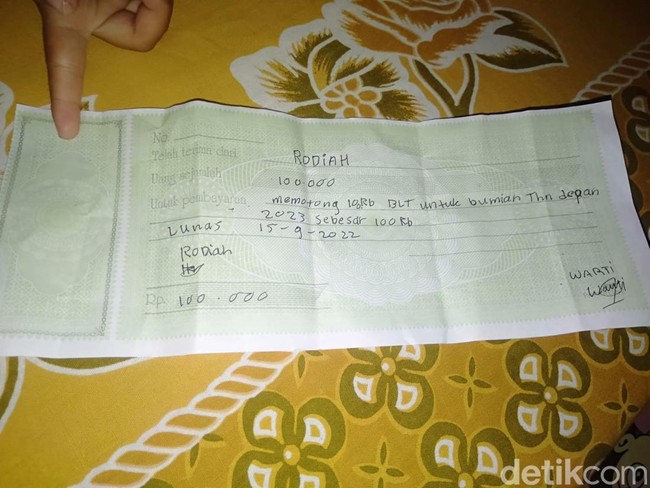 No.
Telah terima dari RODIAH
Uang sejumlah 100.000
Untuk pembayaran memotong BLT untuk bumian Thn depan
2023 sebesar 100 Rb
Lunas 15-9-2022
Rodiah
WARTI
Rp. 100.000
detikcom